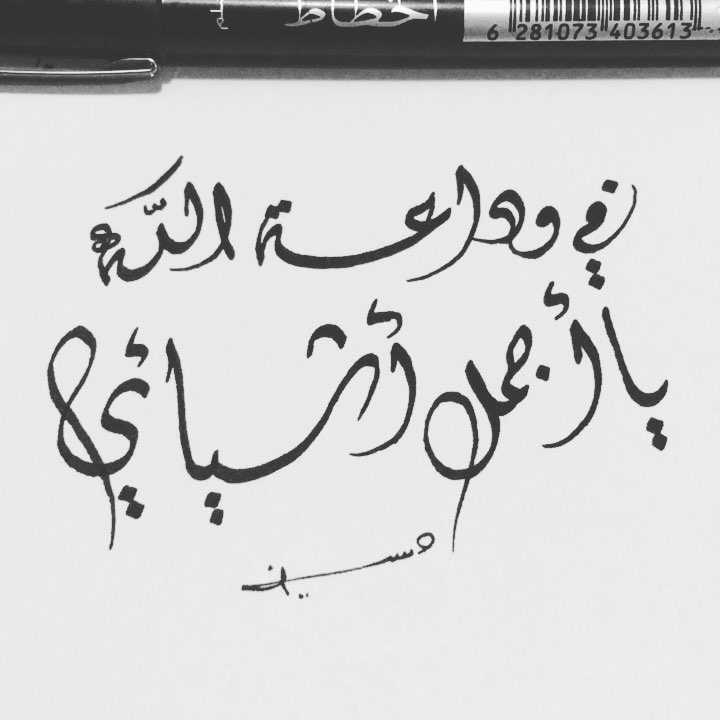 الخطاط
6 281073 403613
في وداعة اللّه
يا أجمل أشيائي